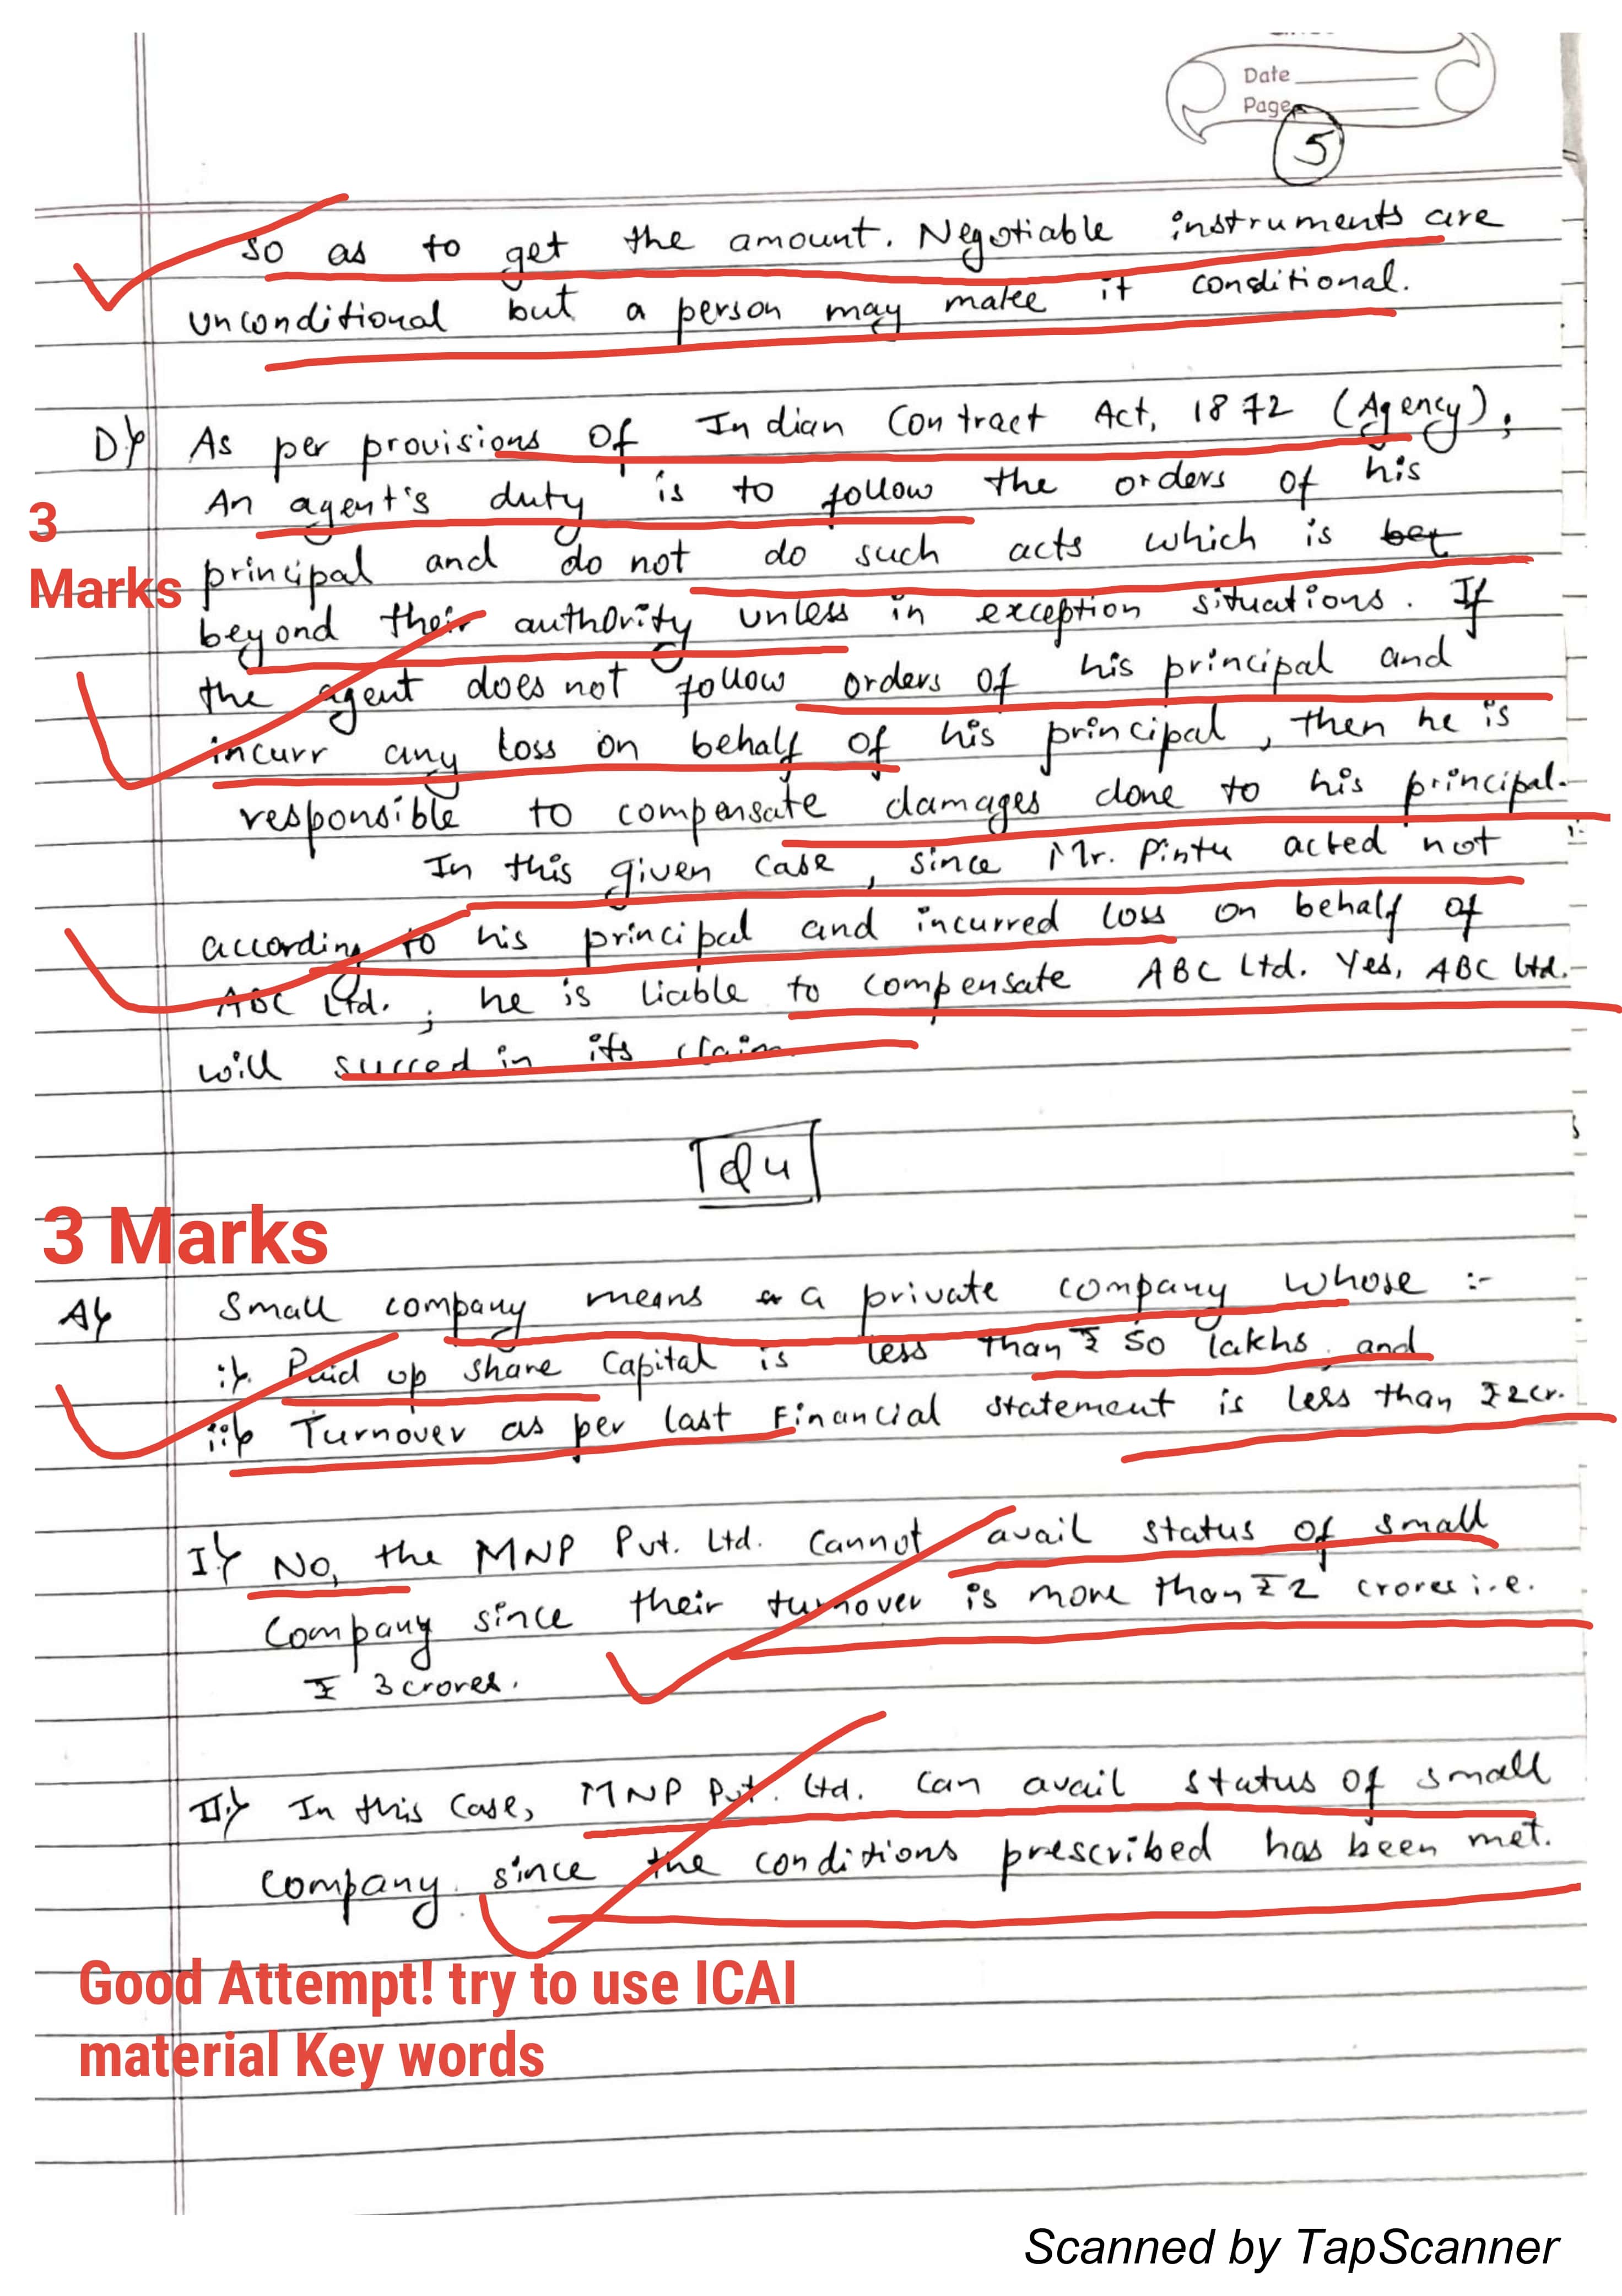 Date
Page
5
so as to get the amount. Negotiable instruments are
unconditional but a person may make it conditional.
D) As per provisions of Indian Contract Act, 1872 (Agency),
An agent's duty is to follow the orders of his
3
principal and do not do such acts which is bey
Marks
beyond their authority unless in exception situations. If
the agent does not follow orders of his principal and
incurr any loss on behalf of his principal, then he is
responsible to compensate damages done to his principal.
In this given case, since Mr. Pintu acted not
according to his principal and incurred loss on behalf of
ABC Ltd., he is liable to compensate ABC Ltd. Yes, ABC Ltd.
will succed in its claim
Q4
3 Marks
A) Small company means a private company whose :-
i). Paid up share capital is less than ₹ 50 lakhs, and
ii) Turnover as per last Financial statement is less than ₹2cr.
I) No, the MNP Pvt. Ltd. cannot avail status of small
Company since their turnover is more than ₹ 2 crores i.e.
₹ 3 crores.
II) In this case, MNP Pvt. Ltd. can avail status of small
company. since the conditions prescribed has been met.
Good Attempt! try to use ICAI
material Key words
Scanned by TapScanner